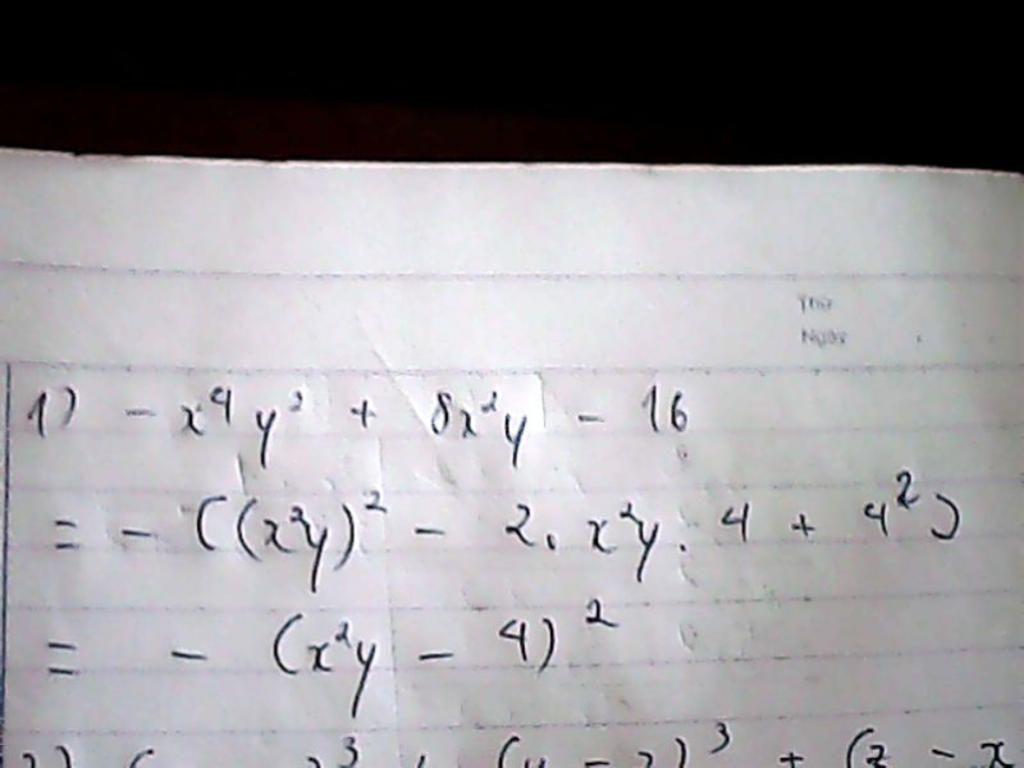 Thứ
Ngày
1) - x⁴y² + 8x²y - 16
= - ((x²y)² - 2. x²y. 4 + 4²)
= - (x²y - 4)²